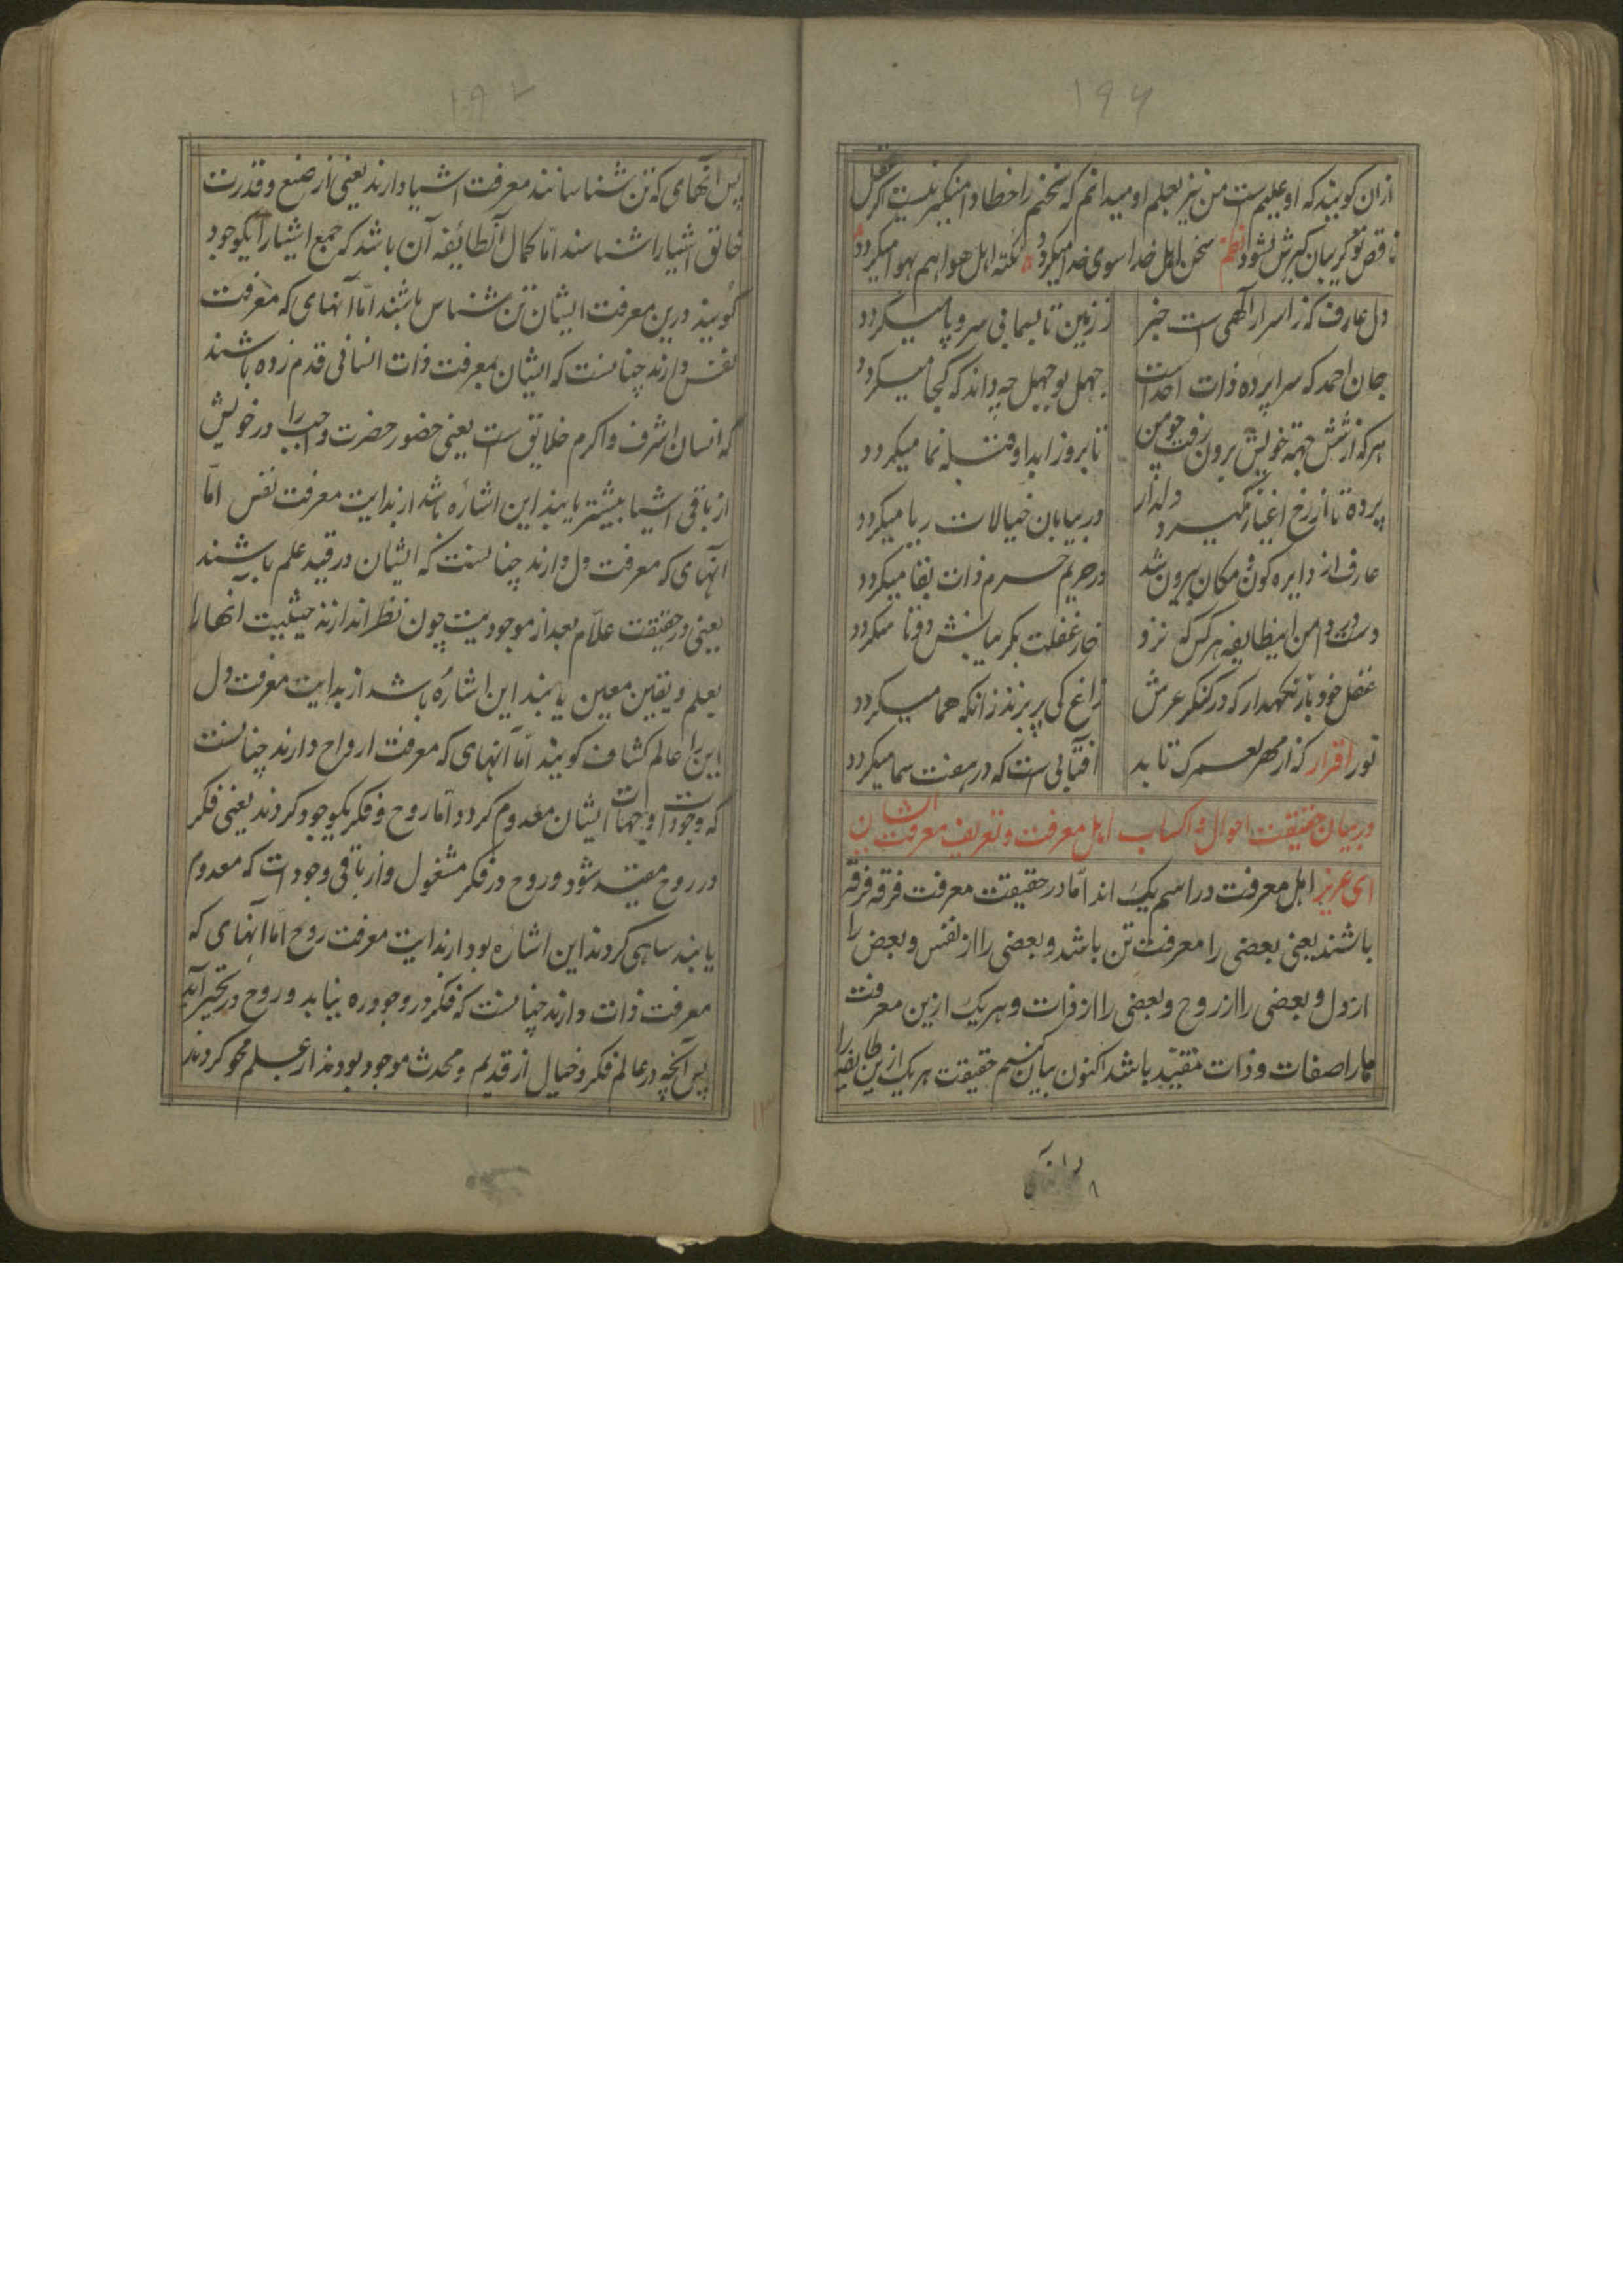 ۱۹۶
ازان کویند که او علیم است من نیز بعلم او میدانم که سخنم را خطا دامنکیر نیست اکر عقل
ناقص تو کریبان کیرش نشود نظم سخن اهل خدا سوی خدا میکردد نکته اهل هوا هم بهوا میکردد
دل عارف که ز اسرار الهی است خبر ز زمین تا بسما بی سر و پا میکردد
جان احمد که سراپرده ذات احد است جهل بوجهل چه داند که کجا میکردد
هرکه از شش جهة خویش برون رفت چو من تا بروز ابد او قبله نما میکردد
پرده تا از رخ اغیار نکیرد دلدار در بیابان خیالات ریا میکردد
عارف از دایره کون و مکان بیرون شد در حریم حرم ذات بقا میکردد
دست در دامن اینطایفه هرکس که نزد خار غفلت بکریبانش دوتا میکردد
عقل خود باز نکهدار که در کنکر عرش زاغ کی پر بزند زانکه هما میکردد
نور اقرار که از مهر لعمرک تابد افتابی است که در هفت سما میکردد
در بیان حقیقت احوال و اکساب اهل معرفت و تعریف معرفت ایشان
ای عزیز اهل معرفت در اسم یک اند اما در حقیقت معرفت فرقه فرقه
باشند یعنی بعضی را معرفت تن باشد و بعضی را از نفس و بعض را
از دل و بعضی را از روح و بعضی را از ذات و هریک ازین معرفت
ها را صفات و ذات مقید باشد اکنون بیان کنیم حقیقت هریک ازین طایفه را
پس آنهای که تن شناسانند معرفت اشیا دارند یعنی از صنع و قدرت
خالق اشیا را شناسند اما کمال آنطائفه آن باشد که جمع اشیا را یکوجود
کویند درین معرفت ایشان تن شناس باشند اما آنهای که معرفت
نفس دارند چنانست که ایشان بمعرفت ذات انسانی قدم زده باشند
که انسان اشرف و اکرم خلایق است یعنی حضور حضرت واجب را در خویش
از باقی اشیا بیشتر یابند این اشاره باشد از بدایت معرفت نفس اما
آنهای که معرفت دل دارند چنانست که ایشان در قید علم باشند
یعنی در حقیقت علام بعد از موجودیت چون نظر اندازند حیثیت آنها را
بعلم و یقین معین یابند این اشاره باشد از بدایت معرفت دل
این را عالم کشاف کویند اما آنهای که معرفت ارواح دارند چنانست
که وجودات وجهات ایشان معدوم کردد اما روح و فکر یکوجود کردند یعنی فکر
در روح مقید شود و روح در فکر مشغول و از باقی وجودات که معدوم
یابند ساهی کردند این اشاره بود از بدایت معرفت روح اما آنهای که
معرفت ذات دارند چنانست که فکر در وجود ره نیابد و روح در تحیر آید
پس آنچه در عالم فکر و خیال از قدیم و محدث موجود بودند از علم محو کردند